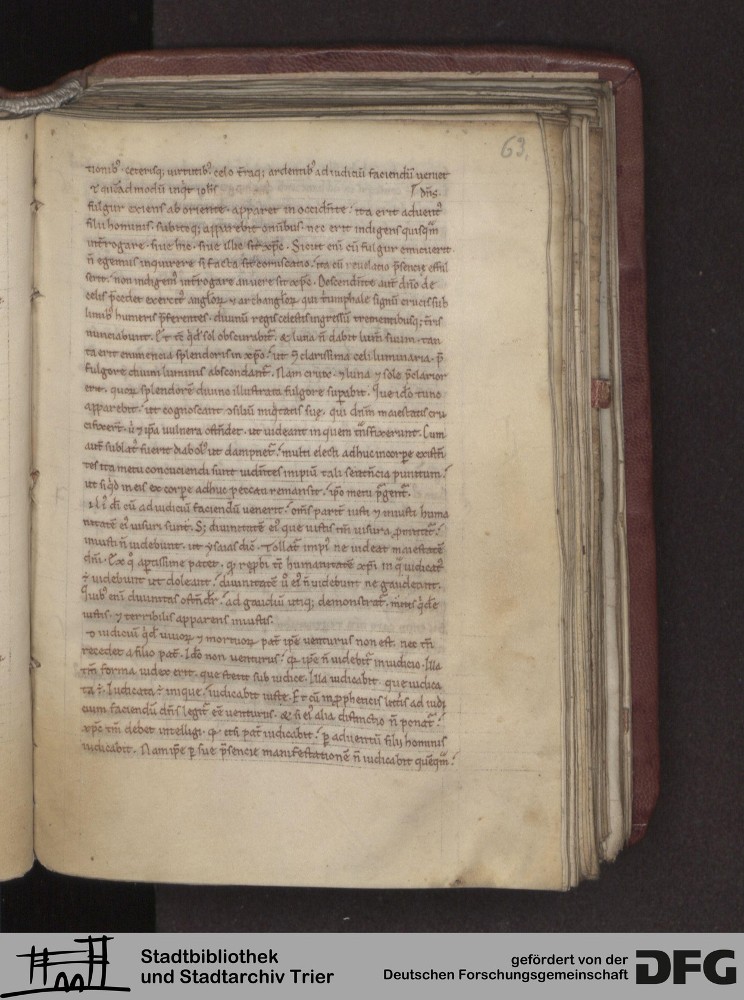 63.
tionib᷒ · ceterisq; uirtutib᷒ · celo t̄raq; ardentib᷒ ad iudiciū faciendū ueniet
dn̄s.
fulgur exiens ab oriente · apparet in occidn̄te · ita erit aduent᷒
filii hominis · subitoq; apparebit om̄ibus · nec erit indigens quisq̄m
int̄rogare · siue hic · siue illic sit xp̄c · Sicut eni cū fulgur emicuerit
n̄ egemus inquirere si facta sit coruscatio · ita cū reuelatio p̄sencie effūl
serit · non indigem᷒ int̄rogare an uere sit xp̄c · Descendn̄te aut̄ dn̄o de
celis p̄cedet exercit᷒ angloꝝ ⁊ archangloꝝ qui triumphale signū crucis sub
limib᷒ humeris p̄ferentes · diuinū regis celestis ingressū trementibus; t̄ris
nunciabunt · sol obscurabit᷒ · & luna n̄ dabit lum̄ suum · tan
ta erit eminencia splendoris in xp̄o · ut clarissima celi luminaria · p̄
fulgore diuini luminis abscondant᷒ · Nam crux · ⁊ luna ⁊ sole p̄clarior
erit · quoꝝ splendorē diuino illustrata fulgore sup̄abit · Que ido tunc
apparebit · ut cognoscant iniq̄tatis sue · qui dn̄m maiestatis cru
cifixer̄t · ⁊ ipa uulnera ostn̄det · ut uideant in quem t̄nsfixerunt · Cum
aut̄ sublat᷒ fuerit diabol᷒ ut dampnet᷒ · multi electi adhuc in corpe existn̄
tes ita metu concuciendi sunt uidn̄tes impiū tali sentencia punitum ·
ut siq̄d in eis ex corpe adhuc peccati remansit · ip̄o metu p̄gent᷒ ·
cū ad iudiciū faciendū uenerit · om̄s parit᷒ iusti ⁊ iniusti huma
nitatē ei᷒ uisuri sunt · S; diuinitatē ei᷒ que iustis tm̄ uisura
iniusti n̄ uidebunt · ut ysaias dic̄ · Tollat᷒ impi᷒ ne uideat maiestatē
dn̄i · Ex q᷒ aptissime patet · humanitatē xp̄i in q᷒ iudicat᷒
uidebunt ut doleant · diuinitatē u᷒ ei᷒ n̄ uidebunt ne gaudeant ·
Quib᷒ eni diuinitas ostn̄dit᷒ · ad gaudiū utiq; demonstrat᷒ · mitis q̄de
iustis · ⁊ terribilis apparens iniustis ·
iudiciū q̄d uiuoꝝ ⁊ mortuoꝝ pat᷒ ip̄e uenturus non est · nec tn̄
recedet a filio pat᷒ · Ido non uenturus · ip̄e n̄ uidebit᷒ in iudicio · Illa
tm̄ forma iudex erit · que stetit sub iudice · Illa iudicabit · que iudica
ta ē · Iudicata ē inique · iudicabit iuste · Et cū in ppheticis lectis ad iud
cium faciendū dn̄s legit᷒ ēe uenturus · & si ei᷒ alia distinctio n̄ ponat᷒ ·
xp̄c tm̄ debet intelligi · etsi pat᷒ iudicabit · p aduentū filii hominis
iudicabit · Nam ip̄e p sue p̄sencie manifestationē n̄ iudicabit quēq̄m ·
Stadtbibliothek
und Stadtarchiv Trier
gefördert von der
Deutschen Forschungsgemeinschaft
DFG